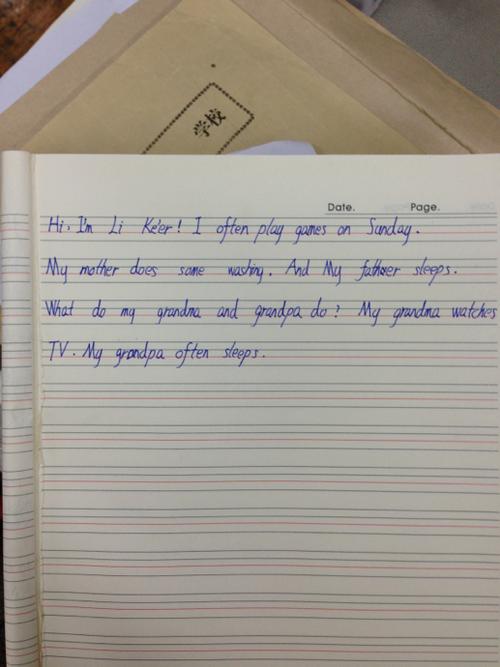 学校
Date. Page.
Hi, I'm Li Ke'er! I often play games on Sunday.
My mother does some washing. And My father sleeps.
What do my grandma and grandpa do? My grandma watches
TV. My grandpa often sleeps.